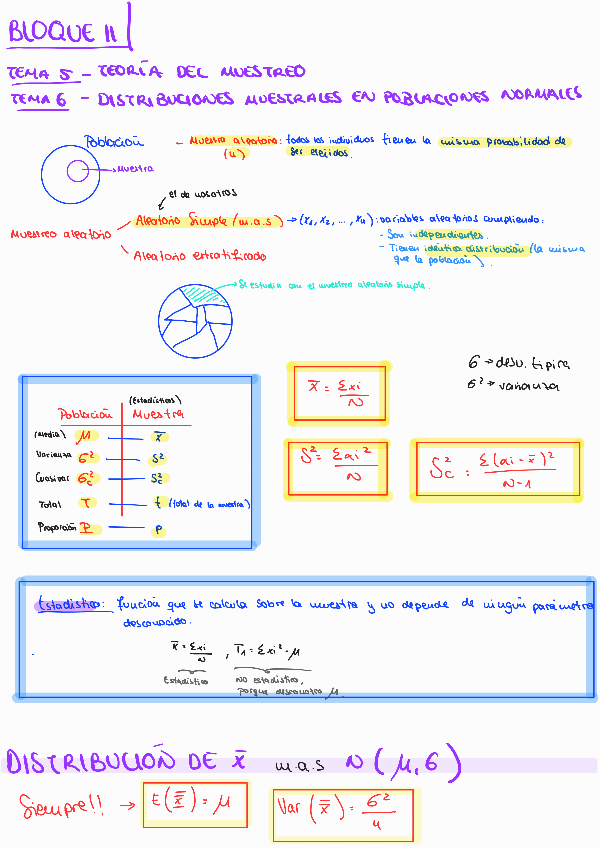 BLOQUE II
TEMA 5 - TEORÍA DEL MUESTREO
TEMA 6 - DISTRIBUCIONES MUESTRALES EN POBLACIONES NORMALES
Población
Muestra
- Muestra aleatoria: todos los individuos tienen la misma probabilidad de
(n) ser elejidos.
el de nosotros
Muestreo aleatorio
Aleatorio Simple (m.a.s) → (x₁, x₂, ..., xₙ): variables aleatorias cumpliendo:
- Son independientes.
- Tienen idéntica distribución (la misma
que la población).
Aleatorio estratificado
Se estudia con el muestreo aleatorio simple.
σ → desv. típica
σ² → varianza
(Estadísticos)
Población Muestra
(media) μ — x̄
Varianza σ² — S²
Cuasivar σc² — Sc²
Total T — t (total de la muestra)
Proporción P — p
x̄ = Σxi / N
S² = Σai² / N
Sc² = Σ(ai - x̄)² / N-1
Estadístico: función que se calcula sobre la muestra y no depende de ningún parámetro
desconocido.
x̄ = Σxi / N , T₁ = Σxi² - μ
Estadístico
No estadístico,
porque desconozco μ.
DISTRIBUCIÓN DE x̄ m.a.s N(μ, σ)
Siempre!! → E(x̄) = μ
Var(x̄) = σ² / n